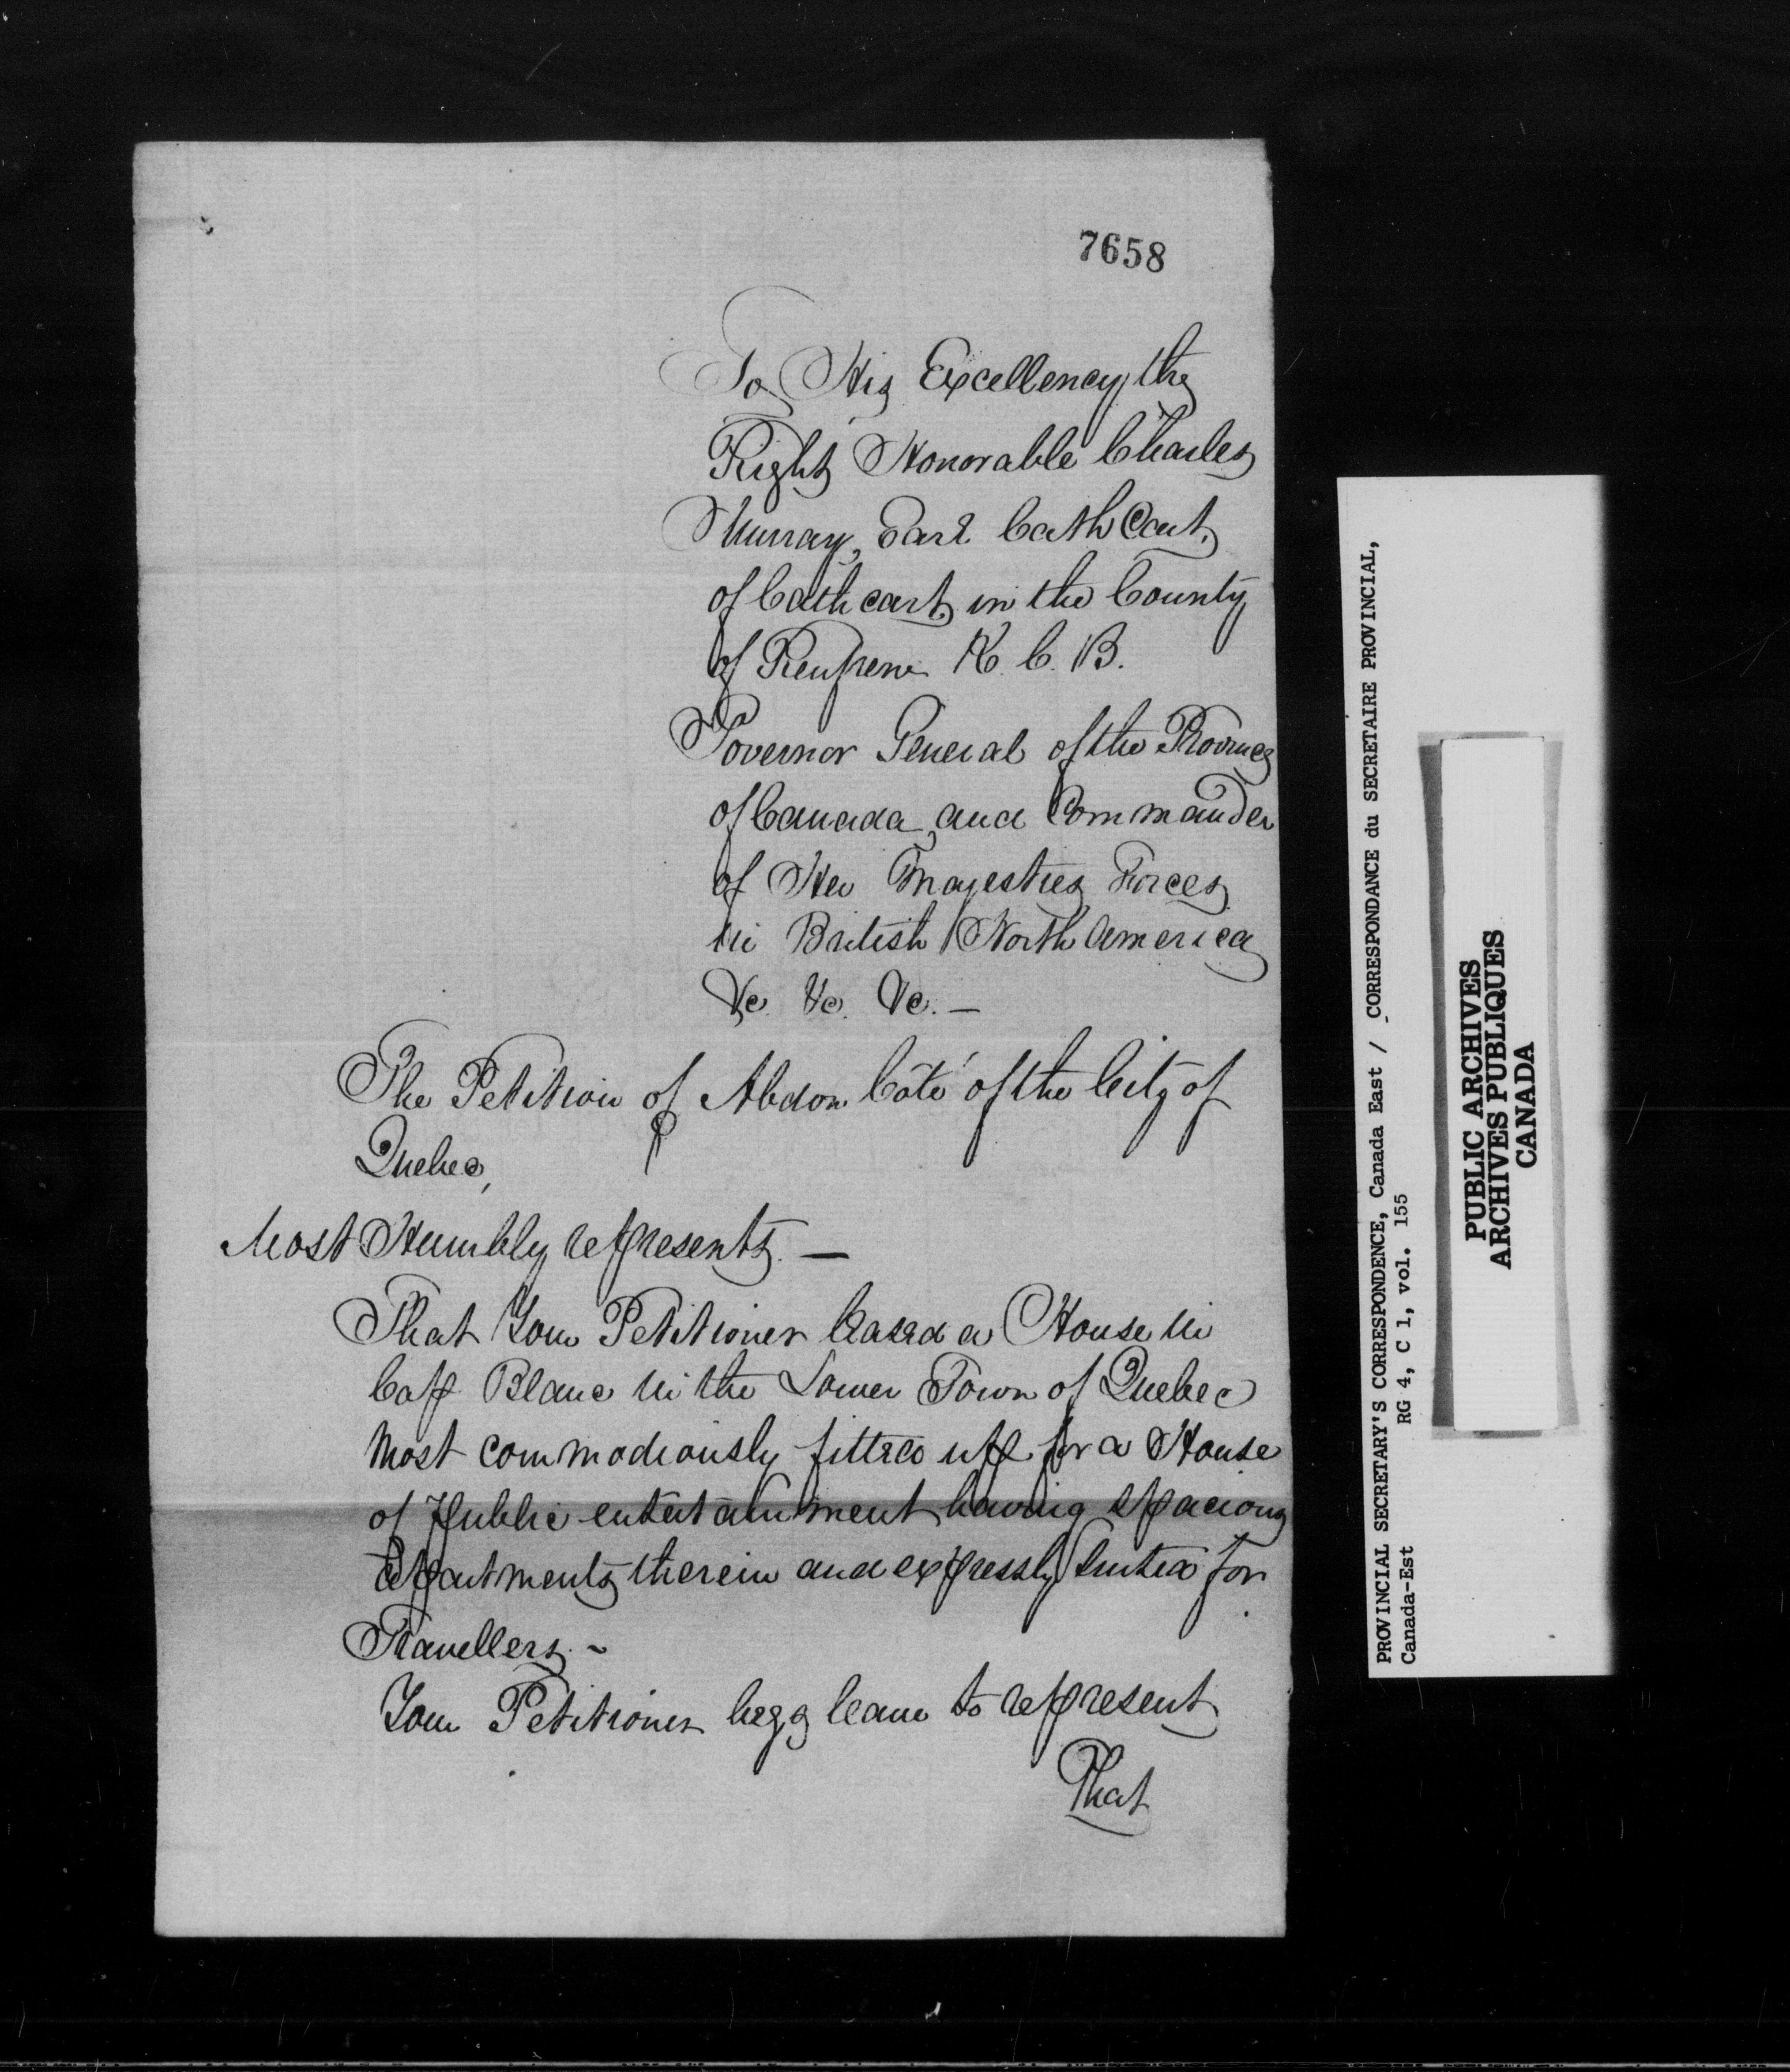 7658
To His Excellency the
Right Honorable Charles
Murray, Earl CathCart,
of Cathcart in the County
of Renfrew K. C. B.
Governor General of the Province
of Canada, and Commander
of Her Majesties Forces
in British North America
&c. &c. &c. —
The Petition of Abdon Côté of the City of
Quebec,
Most Humbly represents. —
That Your Petitioner leased a House in
Cap Blanc in the Lower Town of Quebec
Most commodiously fitted up for a House
of Public entertainment having spacious
Apartments therein and expressly suited for
Travellers. ~
Your Petitioner begs leave to represent
That
PROVINCIAL SECRETARY'S CORRESPONDENCE, Canada East / CORRESPONDANCE du SECRETAIRE PROVINCIAL,
Canada-Est RG 4, C 1, vol. 155
PUBLIC ARCHIVES
ARCHIVES PUBLIQUES
CANADA